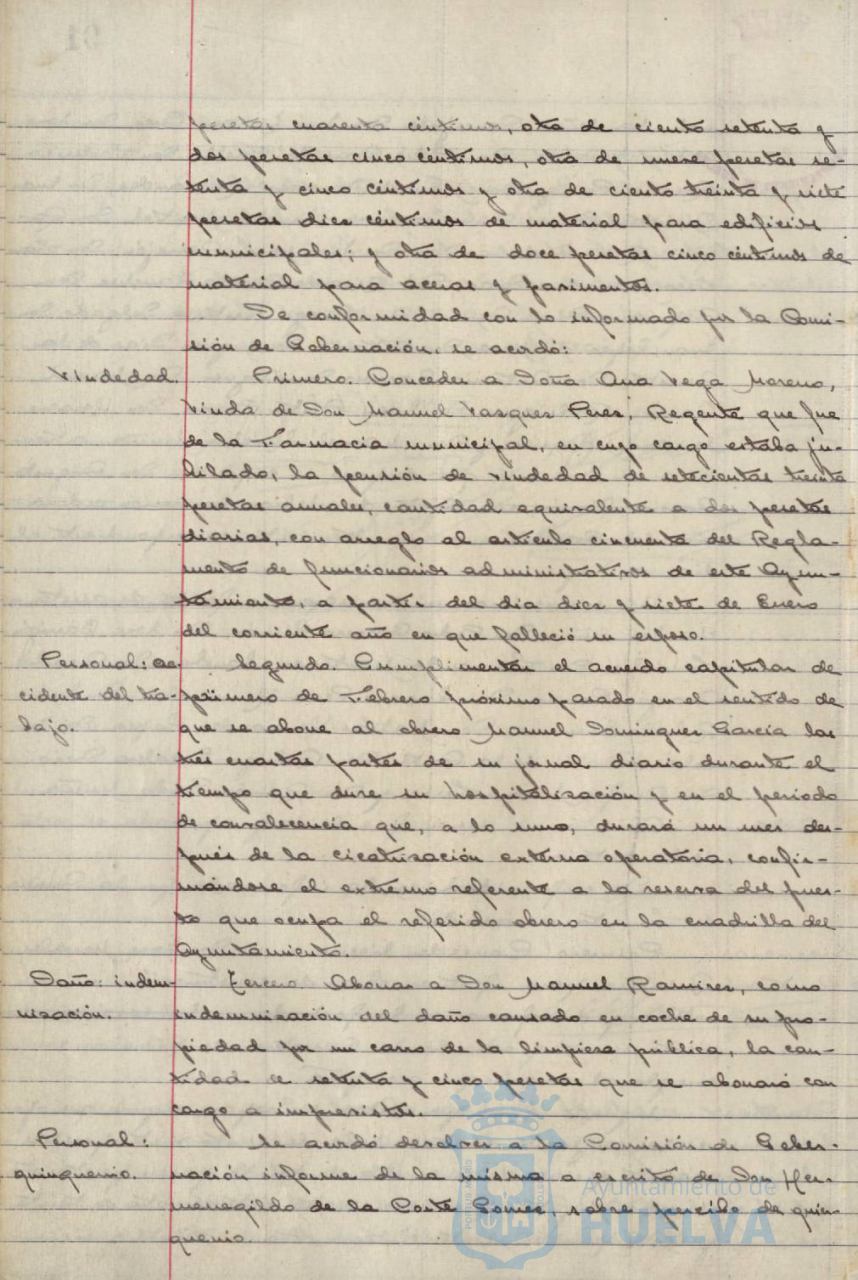 pesetas cuarenta céntimos, otra de ciento setenta y
dos pesetas cinco céntimos, otra de nueve pesetas se-
tenta y cinco céntimos y otra de ciento treinta y siete
pesetas diez céntimos de material para edificios
municipales; y otra de doce pesetas cinco céntimos de
material para aceras y pavimentos.
De conformidad con lo informado por la Comi-
sión de Gobernación, se acordó:
Viudedad. Primero. Conceder a Doña Ana Vega Moreno,
viuda de Don Manuel Vazquez Perez, Regente que fue
de la Farmacia municipal, en cuyo cargo estaba ju-
bilado, la pensión de viudedad de setecientas treinta
pesetas anuales, cantidad equivalente a dos pesetas
diarias, con arreglo al artículo cincuenta del Regla-
mento de funcionarios administrativos de este Ayun-
tamiento, a partir del dia diez y siete de Enero
del corriente año en que falleció su esposo.
Personal: ac- Segundo. Cumplimentar el acuerdo capitular de
cidente del tra- primero de Febrero próximo pasado en el sentido de
bajo. que se abone al obrero Manuel Dominguez García las
tres cuartas partes de su jornal diario durante el
tiempo que dure su hospitalización y en el periodo
de convalecencia que, a lo sumo, durará un mes des-
pués de la cicatrización externa operatoria, confir-
mándose el extremo referente a la reserva del pues-
to que ocupa el referido obrero en la cuadrilla del
Ayuntamiento.
Daño: indem- Tercero. Abonar a Don Manuel Ramirez, como
nización. indemnización del daño causado en coche de su pro-
piedad por un carro de la limpieza pública, la can-
tidad de setenta y cinco pesetas que se abonará con
cargo a imprevistos.
Personal: Se acordó devolver a la Comisión de Gober-
quinquenio. nación informe de la misma a escrito de Don Her-
menegildo de la Corte Gomez, sobre percibo de quin-
quenio.
Ayuntamiento de
HUELVA